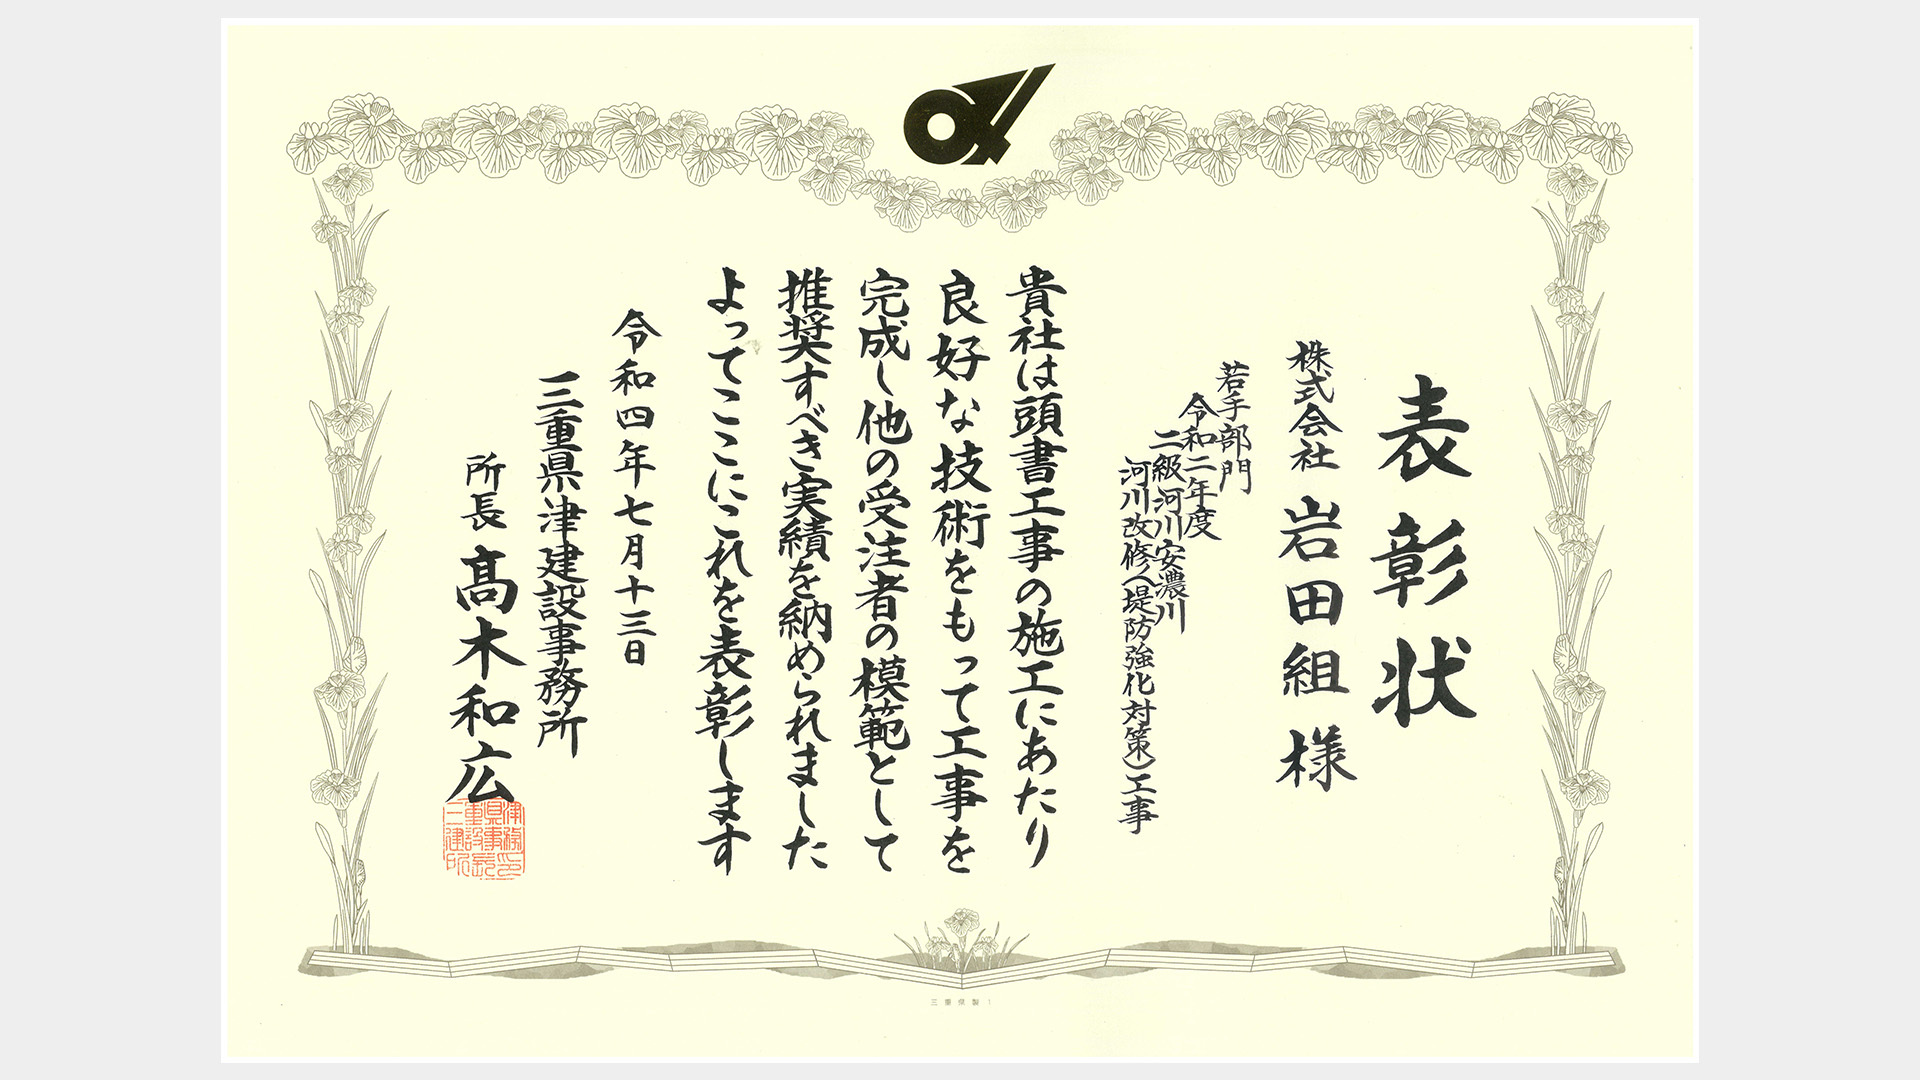 表彰状
株式会社 岩田組 様
若手部門
令和二年度
二級河川安濃川
河川改修(堤防強化対策)工事
貴社は頭書工事の施工にあたり
良好な技術をもって工事を
完成し他の受注者の模範として
推奨すべき実績を納められました
よってここにこれを表彰します
令和四年七月十三日
三重県津建設事務所
所長 髙木和広
三重県津建設事務所長印